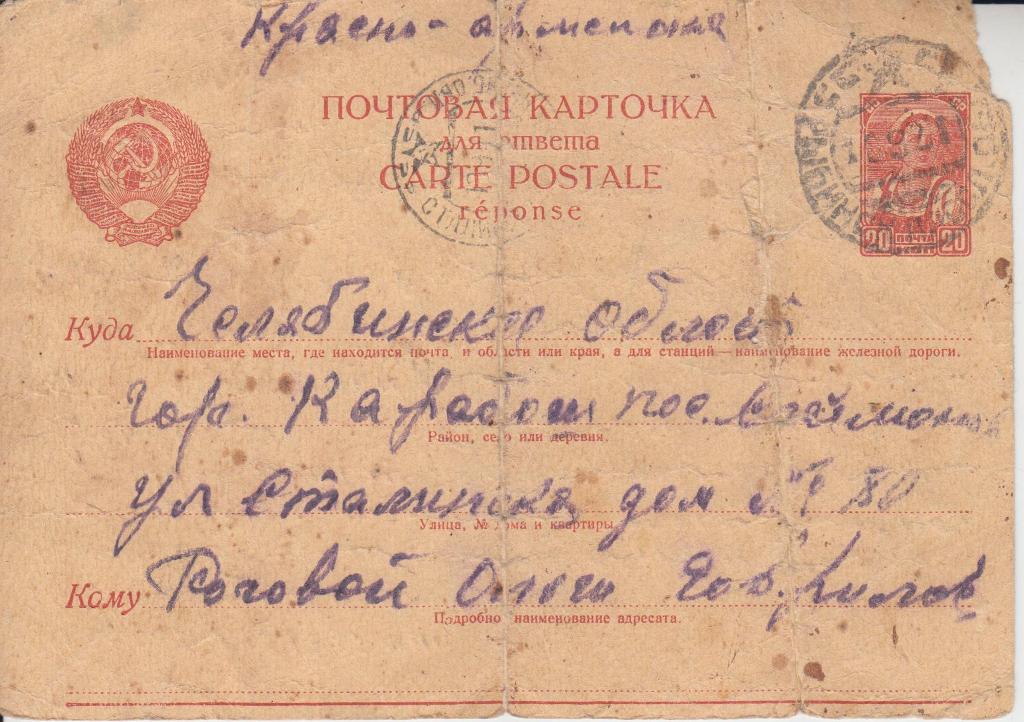 Красно-армейская
ПОЧТОВАЯ КАРТОЧКА
для ответа
CARTE POSTALE
réponse
20 ПОЧТА 20
Куда Челябинская област
Наименование места, где находится почта, и области или края, а для станций—наименование железной дороги.
гор. Карабаш пос.
Район, село или деревня.
ул Сталинска дом № 80
Улица, № дома и квартиры.
Кому Роговой
Подробное наименование адресата.